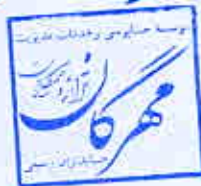 موسسه حسابرسی و خدمات مدیریت
مهرگان
حسابداران رسمی